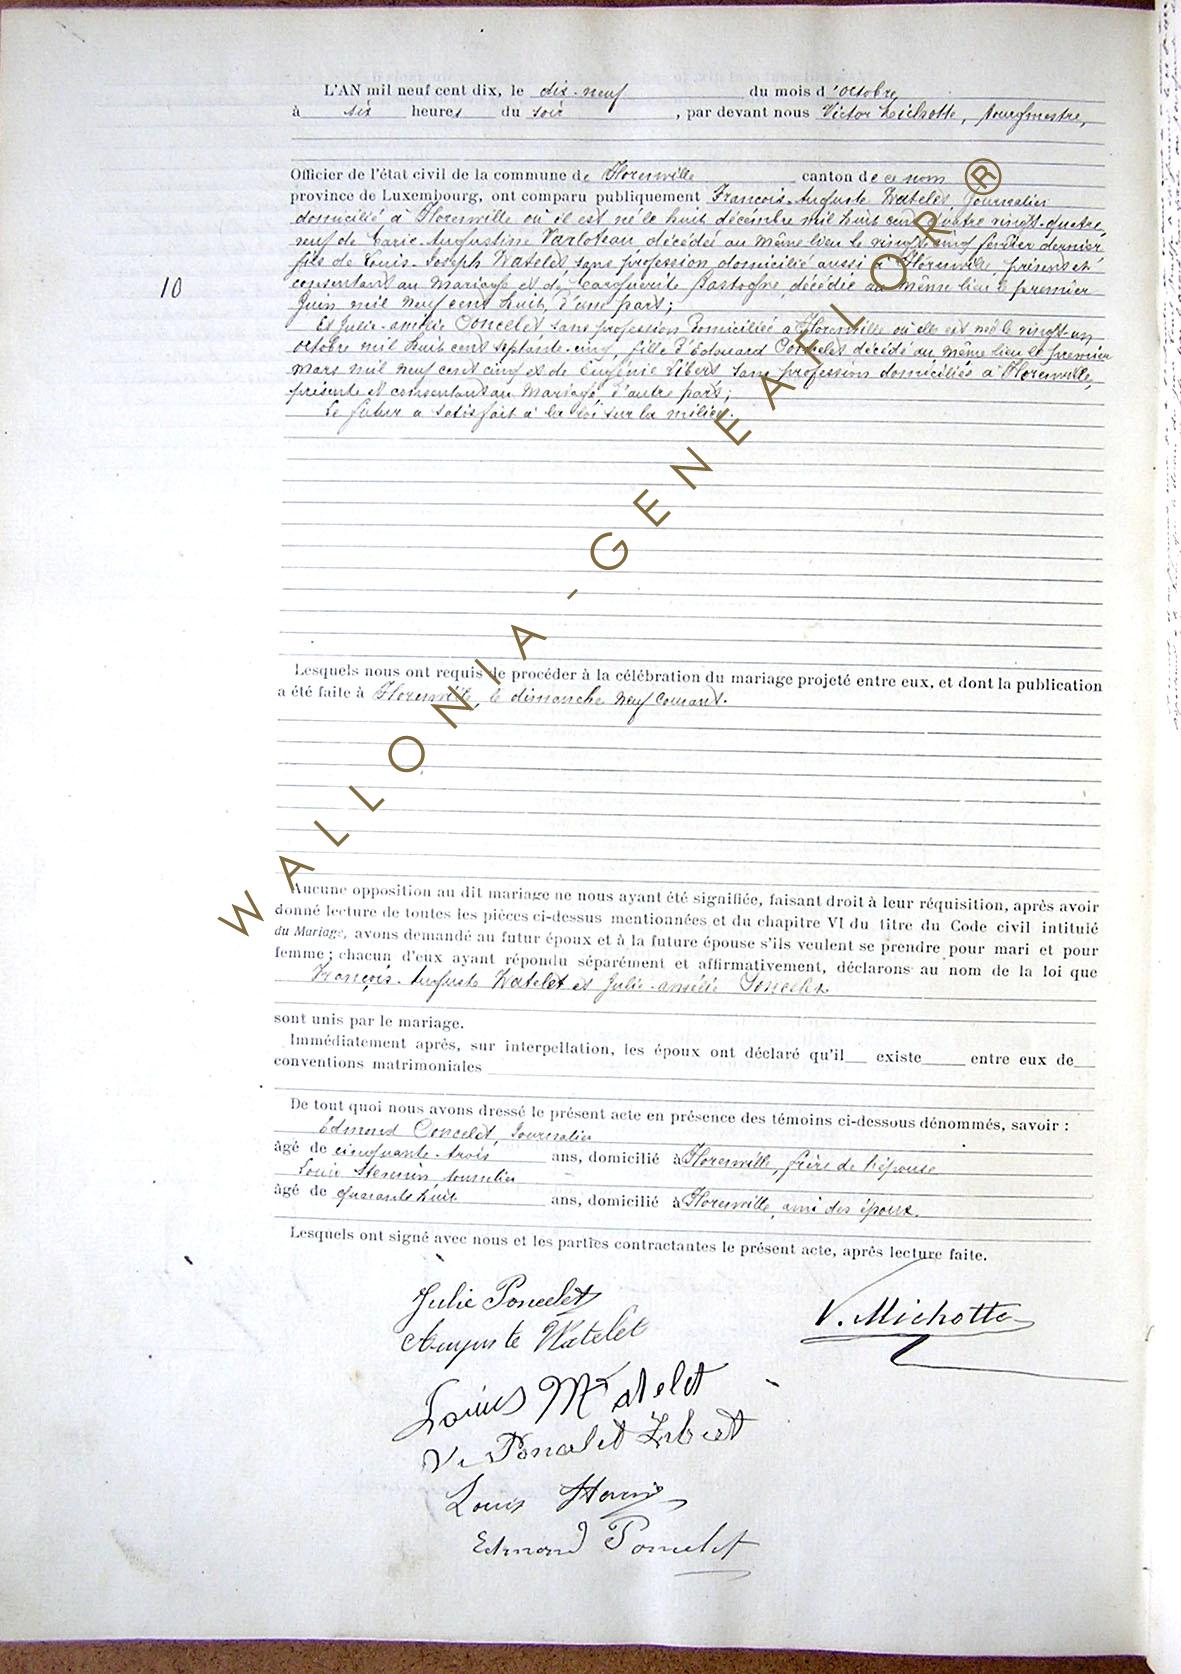 L'AN mil neuf cent dix, le dix-neuf du mois d'octobre,
à six heures du soir, par devant nous Victor Michotte, bourgmestre,
Officier de l'état civil de la commune de Florenville canton de ce nom
province de Luxembourg, ont comparu publiquement François-Auguste Watelet journalier
domicilié à Florenville où il est né le huit décembre mil huit cent quatre vingt-quatre,
veuf de Marie-Augustine Varloteau, décédée au même lieu le vingt-cinq février dernier
fils de Louis-Joseph Watelet sans profession domicilié aussi à Florenville présent et
10
consentant au mariage et de Marguerite Bastogne, décédée au même lieu le premier
juin mil neuf cent huit, d'une part;
Et Julie-amélie Poncelet sans profession domiciliée à Florenville où elle est née le vingt-un
octobre mil huit cent septante-cinq, fille d'Edouard Poncelet décédé au même lieu le premier
mars mil neuf cent cinq et de Eugénie Libert sans profession domiciliée à Florenville
présente et consentant au mariage, d'autre part;
Le futur a satisfait à la loi sur la milice.
Lesquels nous ont requis de procéder à la célébration du mariage projeté entre eux, et dont la publication
a été faite à Florenville, le dimanche neuf courant.
Aucune opposition au dit mariage ne nous ayant été signifiée, faisant droit à leur réquisition, après avoir
donné lecture de toutes les pièces ci-dessus mentionnées et du chapitre VI du titre du Code civil intitulé
du Mariage, avons demandé au futur époux et à la future épouse s'ils veulent se prendre pour mari et pour
femme; chacun d'eux ayant répondu séparément et affirmativement, déclarons au nom de la loi que
François-Auguste Watelet et Julie-amélie Poncelet
sont unis par le mariage.
Immédiatement après, sur interpellation, les époux ont déclaré qu'il existe entre eux de
conventions matrimoniales
De tout quoi nous avons dressé le présent acte en présence des témoins ci-dessous dénommés, savoir :
Edmond Poncelet, journalier
âgé de cinquante-trois ans, domicilié à Florenville, frère de l'épouse
Louis
âgé de quarante huit ans, domicilié à Florenville, ami des époux.
Lesquels ont signé avec nous et les parties contractantes le présent acte, après lecture faite.
Julie Poncelet
V. Michotte
Auguste Watelet
Louis Watelet
Ve Poncelet Libert
Louis
Edmond Poncelet
WALLONIA-GENEAFLOR®